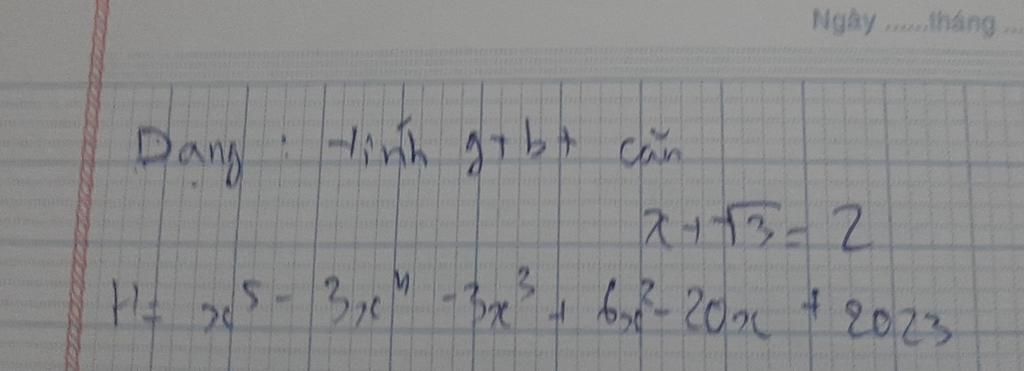 Ngày ......tháng ...
Dạng : tính gt bt căn
x + √3 = 2
H = x⁵ - 3x⁴ - 3x³ + 6x² - 20x + 2023